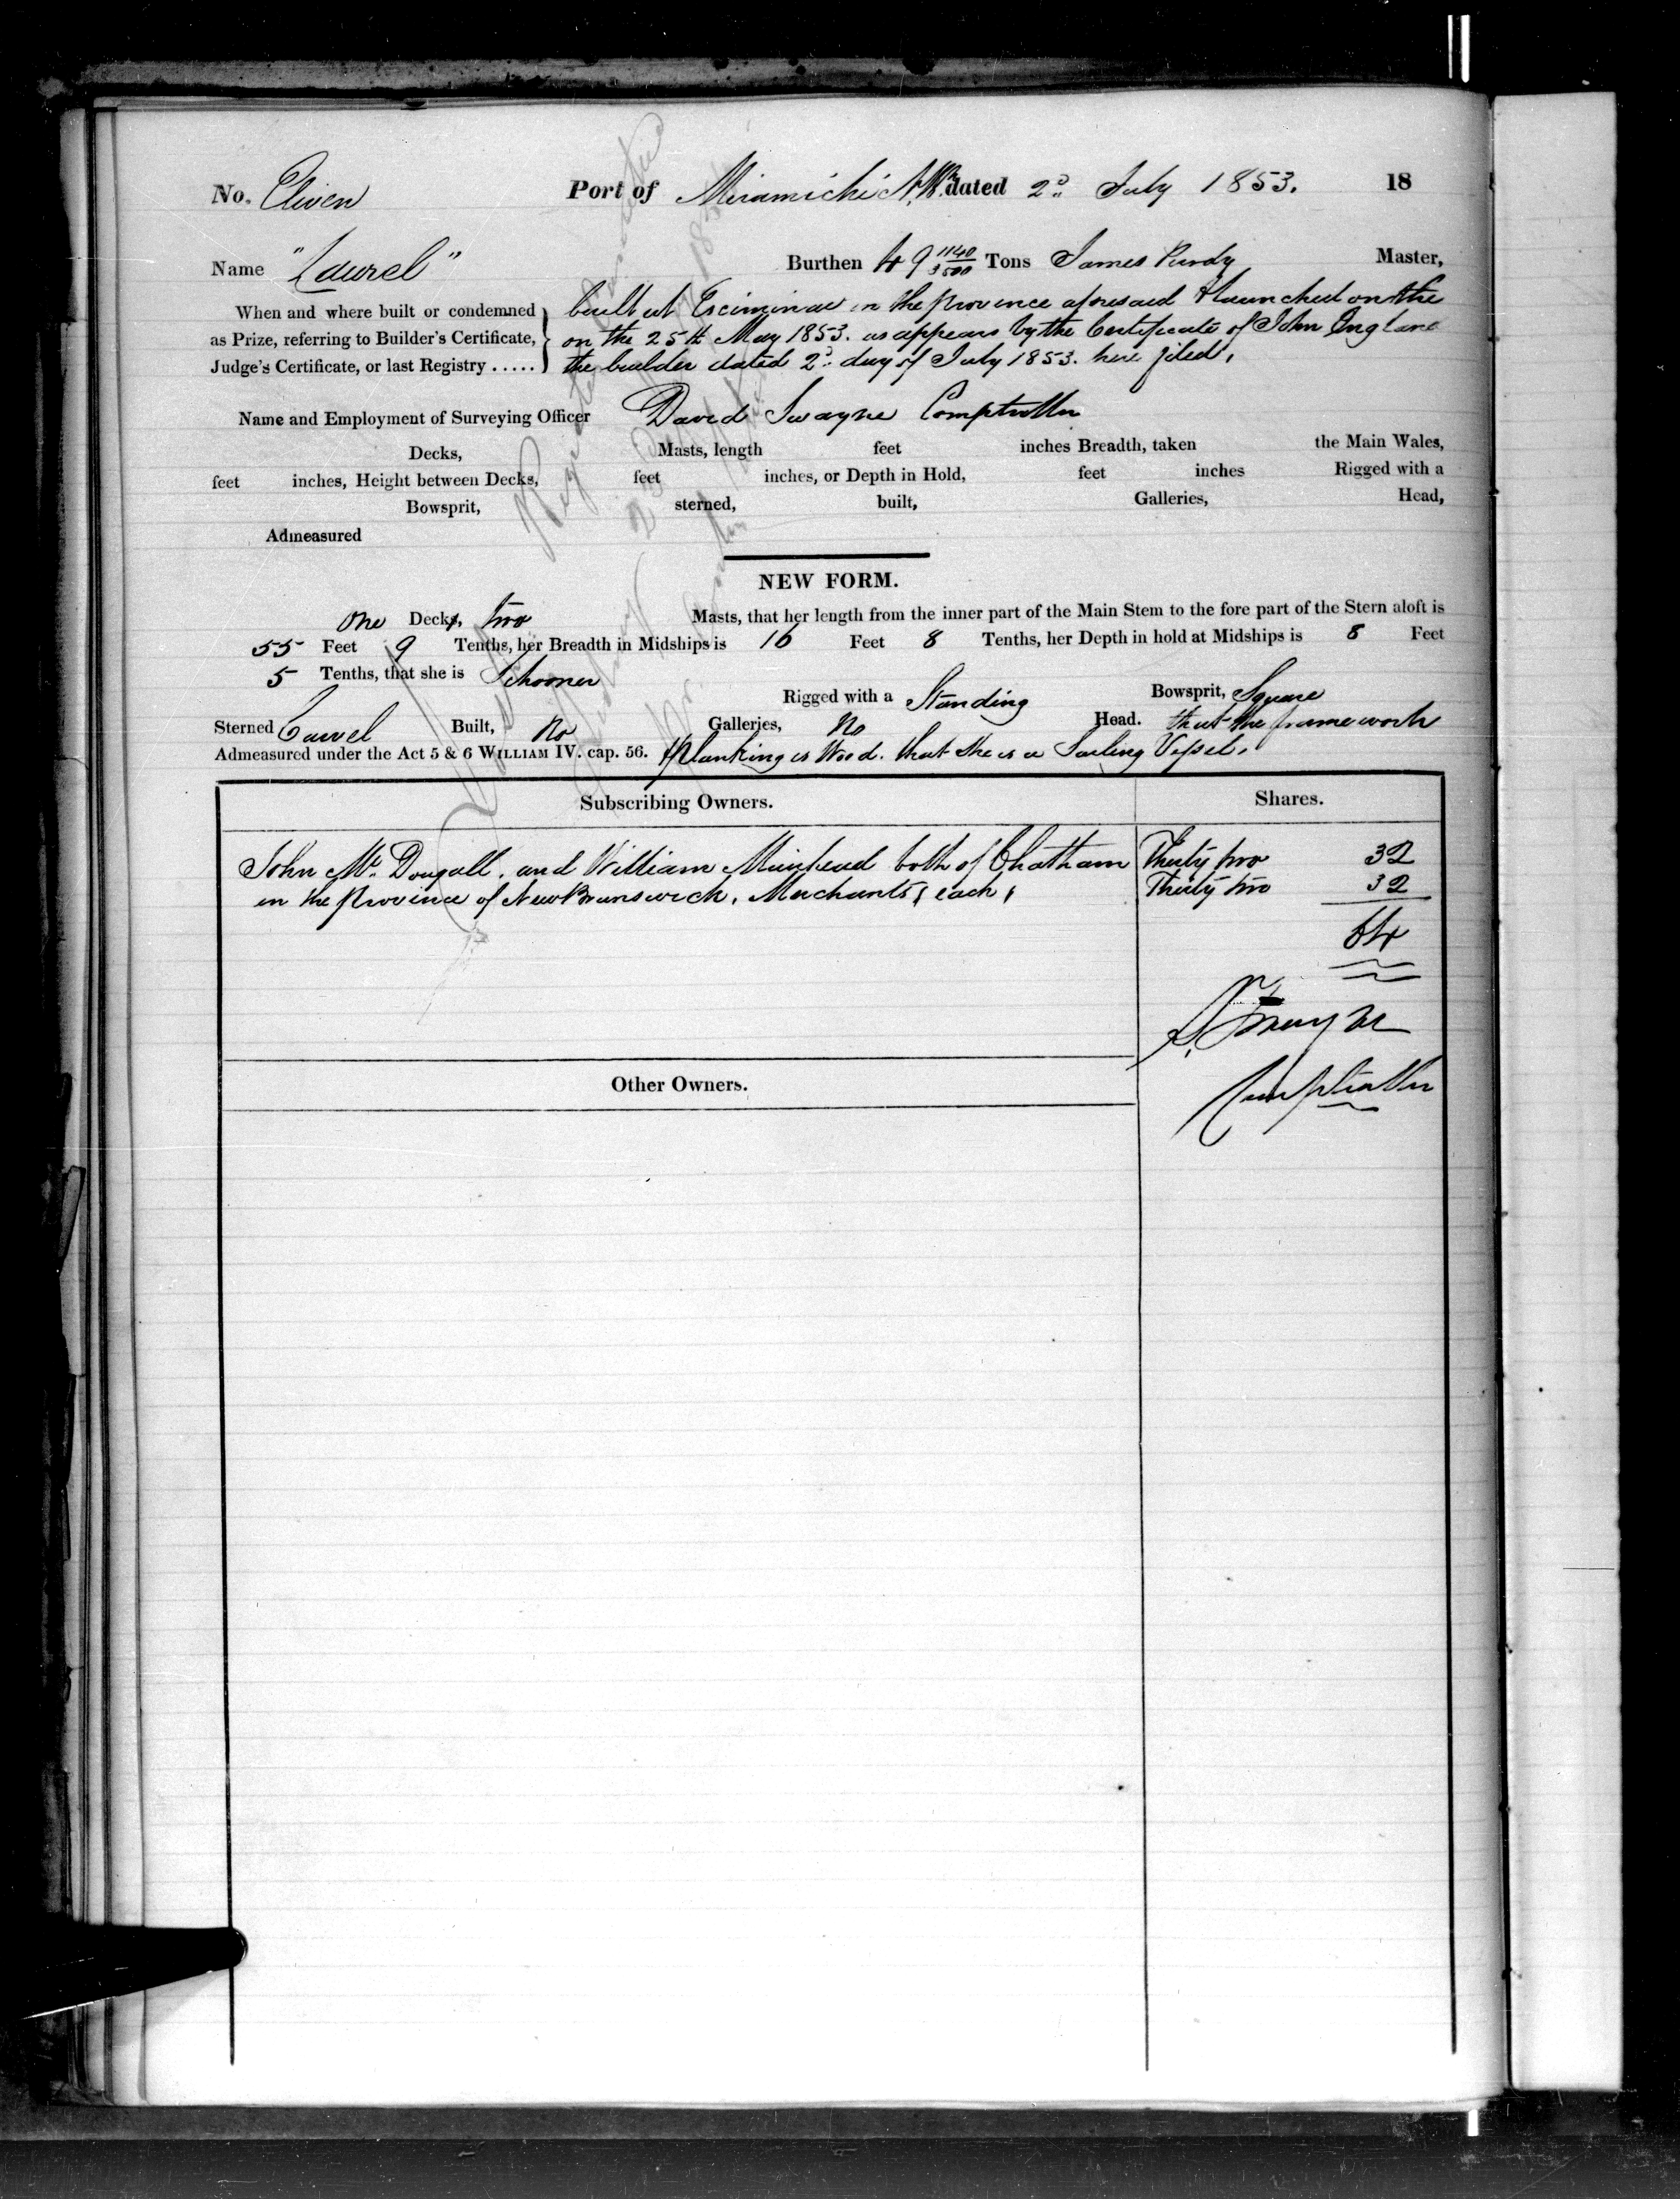 No. Eleven Port of Miramichi N.B. dated 2d July 1853. 18
Name "Laurel" Burthen 49 1140/3500 Tons James Purdy Master,
When and where built or condemned as Prize, referring to Builder's Certificate, Judge's Certificate, or last Registry .....
built at Esciminac in the province aforesaid & launched on the
on the 25th May 1853. as appears by the Certificate of John England
the builder dated 2d day of July 1853. here filed,
Name and Employment of Surveying Officer David Swayne Comptroller
Decks, Masts, length feet inches Breadth, taken the Main Wales,
feet inches, Height between Decks, feet inches, or Depth in Hold, feet inches Rigged with a
Bowsprit, sterned, built, Galleries, Head,
Admeasured
NEW FORM.
one Decks, two Masts, that her length from the inner part of the Main Stem to the fore part of the Stern aloft is
55 Feet 9 Tenths, her Breadth in Midships is 16 Feet 8 Tenths, her Depth in hold at Midships is 8 Feet
5 Tenths, that she is Schooner Rigged with a Standing Bowsprit, Square
Sterned Carvel Built, No Galleries, No Head. that the framework
Admeasured under the Act 5 & 6 WILLIAM IV. cap. 56. & planking is Wood. that she is a Sailing Vessel.
Subscribing Owners. Shares.
John Mc Dougall, and William Muirhead both of Chatham Thirty two 32
in the province of New Brunswick, Merchants, each, Thirty two 32
64
D. Swayne
Comptroller
Other Owners.